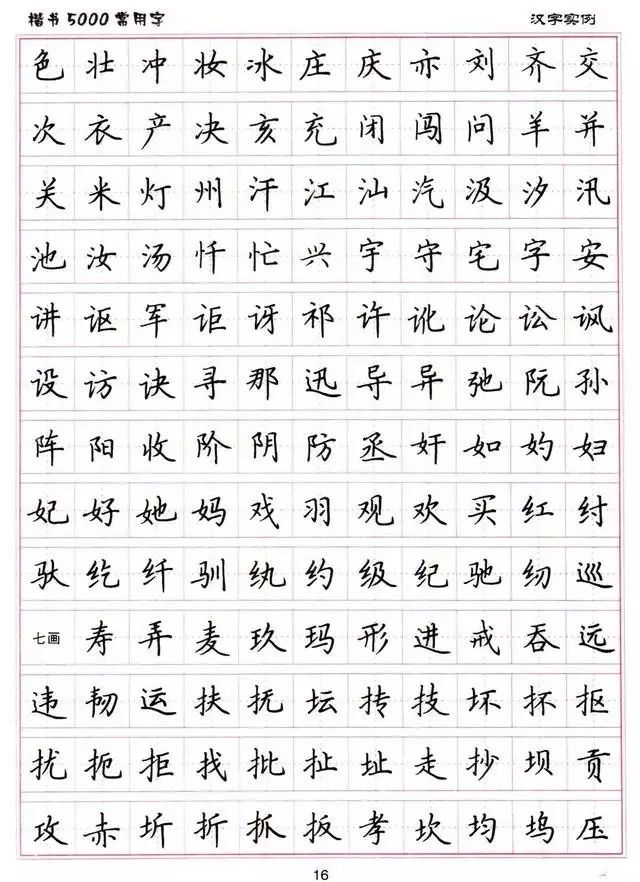 楷书5000常用字 汉字实例
色 壮 冲 妆 冰 庄 庆 亦 刘 齐 交
次 衣 产 决 亥 充 闭 闯 问 羊 并
关 米 灯 州 汗 江 汕 汽 汲 汐 汛
池 汝 汤 忏 忙 兴 宇 守 宅 字 安
讲 讴 军 讵 讶 祁 许 讹 论 讼 讽
设 访 诀 寻 那 迅 导 异 弛 阮 孙
阵 阳 收 阶 阴 防 丞 奸 如 妁 妇
妃 好 她 妈 戏 羽 观 欢 买 红 纣
驮 纥 纤 驯 纨 约 级 纪 驰 纫 巡
七画 寿 弄 麦 玖 玛 形 进 戒 吞 远
违 韧 运 扶 抚 坛 抟 技 坏 抔 抠
扰 扼 拒 找 批 扯 址 走 抄 坝 贡
攻 赤 圻 折 抓 扳 孝 坎 均 坞 压
16